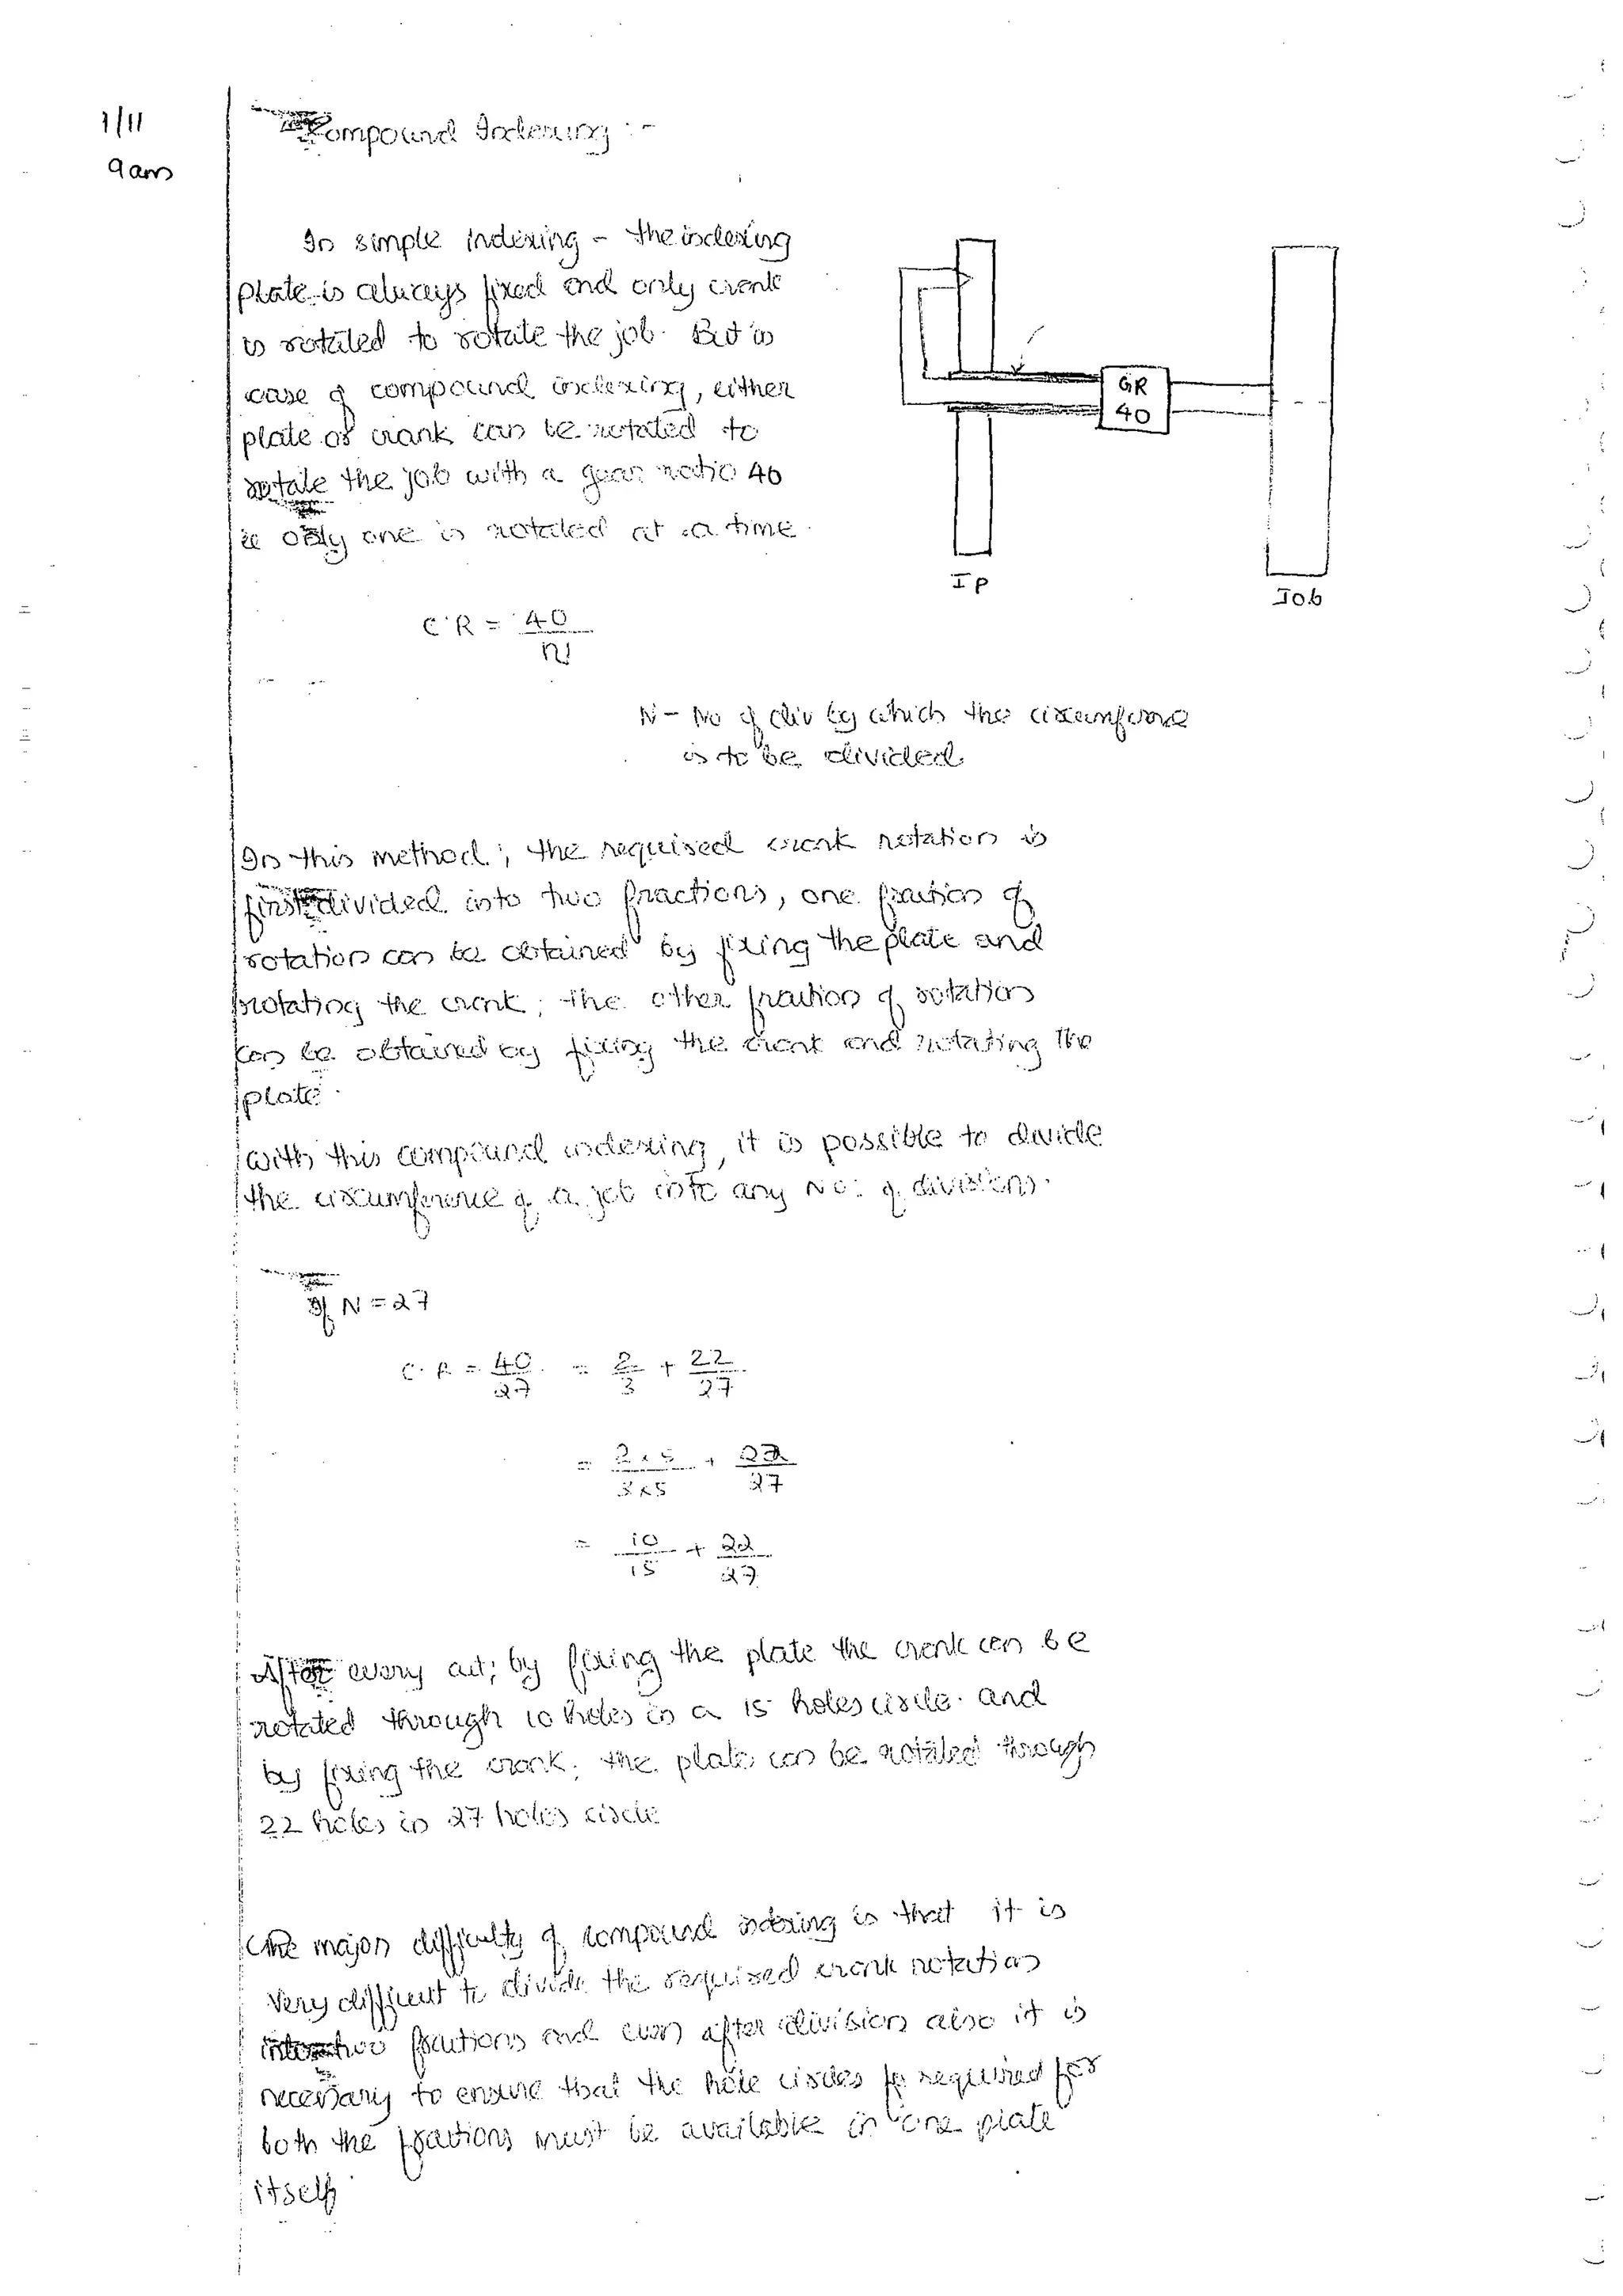 1/11
9am
Compound Indexing :-
In simple indexing - the indexing
plate is always fixed and only crank
is rotated to rotate the job. But in
case of compound indexing, either
plate or crank can be rotated to
rotate the job with a gear ratio 40
ie only one is rotated at a time.
GR
40
IP
Job
CR = 40/N
N - No of div by which the circumference
is to be divided.
In this method ; the required crank rotation is
first divided into two fractions, one fraction of
rotation can be obtained by fixing the plate and
rotating the crank ; the other fraction of rotation
can be obtained by fixing the crank and rotating the
plate.
With this compound indexing, it is possible to divide
the circumference of a job into any No: of divisions.
If N = 27
C.R = 40/27 = 2/3 + 22/27
= 2x5/3x5 + 22/27
= 10/15 + 22/27
After every cut; by fixing the plate the crank can be
rotated through 10 holes in a 15 holes circle. and
by fixing the crank, the plate can be rotated through
22 holes in 27 holes circle
One major difficulty of compound indexing is that it is
very difficult to divide the required crank rotation
into two fractions and even after division also it is
necessary to ensure that the hole circles required for
both the fractions must be available in one plate
itself.